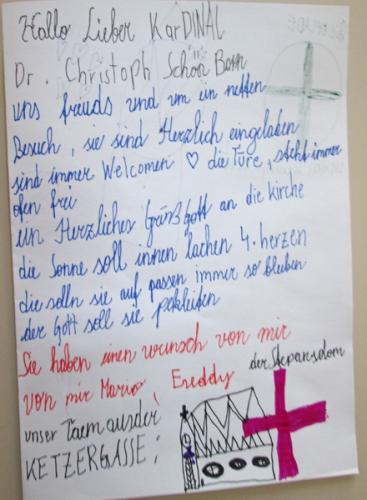 Hallo Lieber KarDINAL
Dr. Christoph Schön Born
uns freuds und um ein netten
Besuch, sie sind Herzlich eingeladen
sind immer Welcomen ♡ die Türe, steht immer
ofen frei
un Herzliches Grüß Gott an die kirche
die Sonne soll innen lachen 4. herzen
die solln sie auf passen immer so bleiben
der Gott soll sie
Sie haben einen wunsch von mir
von mir Mario Freddy
der Stepansdom
unser Taem aus der
KETZERGASSE!